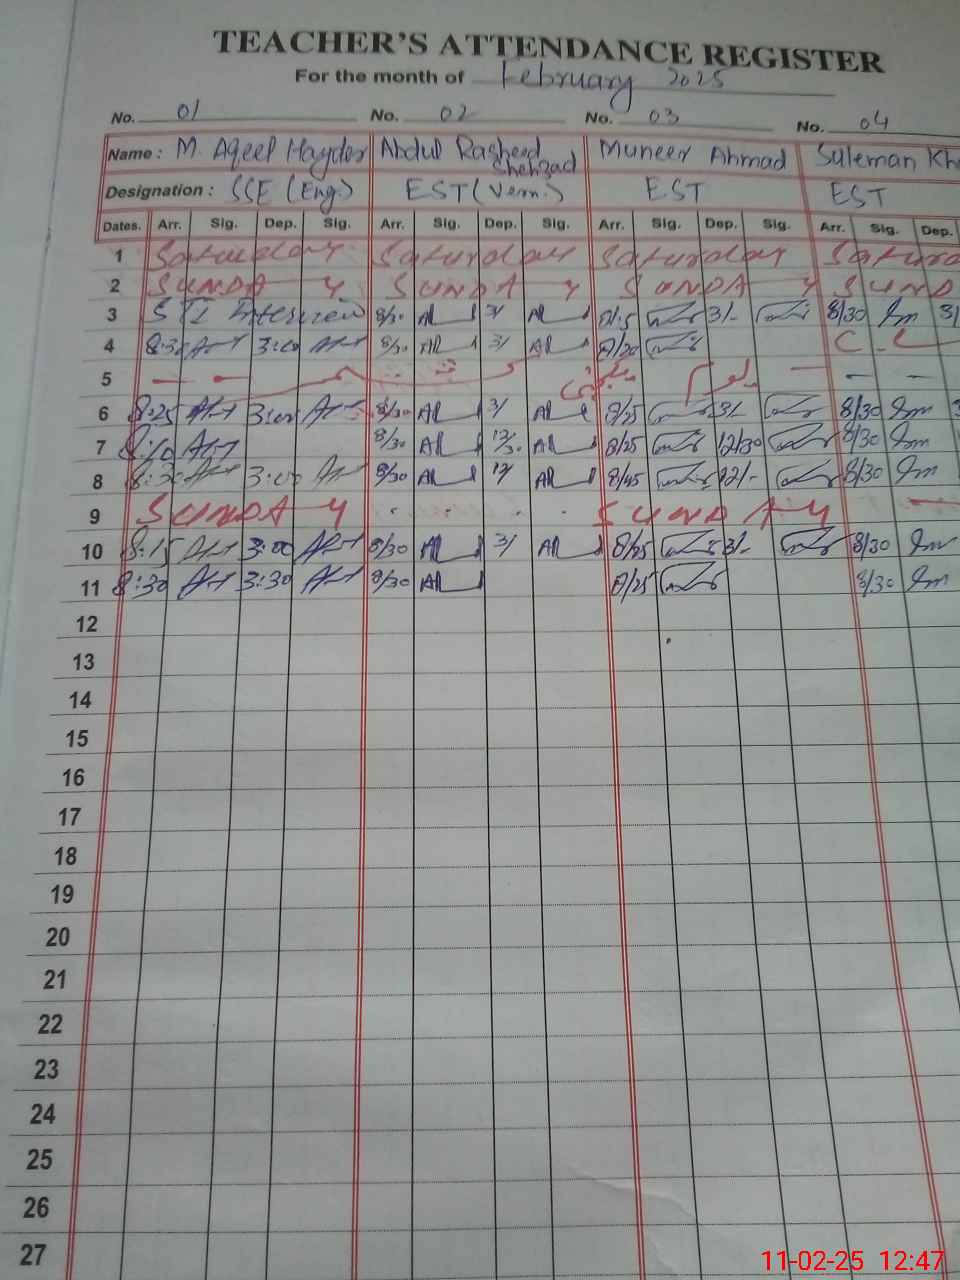 TEACHER'S ATTENDANCE REGISTER
For the month of February 2025
No. 01 No. 02 No. 03 No. 04
Name : M. Aqeel Hayder Abdul Rasheed Shehzad Muneer Ahmad Suleman Kh
Designation : SSE (Eng.) EST (Vern.) EST EST
Dates. Arr. Sig. Dep. Sig. Arr. Sig. Dep. Sig. Arr. Sig. Dep. Sig. Arr. Sig. Dep.
1 Saturday Saturday Saturday Satur
2 SUNDAY SUNDAY SUNDAY SUND
3 STI Interview 8/30 3/ 8/15 3/- 8/30 3/
4 8:30 3:00 8/30 3/ 8/20 C-L
5
6 8:25 3:00 8/30 3/ 8/25 3/- 8/30
7 8:10 8/30 12/30 8/25 12/30 8/30
8 8:30 3:00 8/30 12/ 8/45 12/- 8/30
9 SUNDAY SUNDAY
10 8:15 3:00 8/30 3/ 8/25 3/- 8/30
11 8:30 3:30 8/30 8/25 8/30
12
13
14
15
16
17
18
19
20
21
22
23
24
25
26
27
11-02-25 12:47